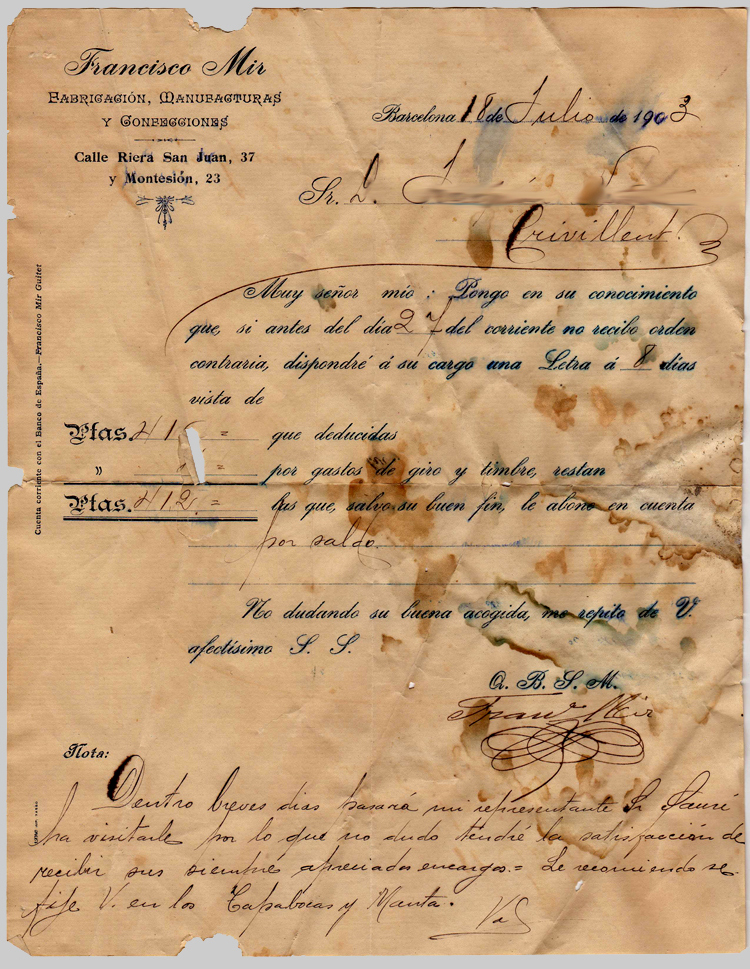 Francisco Mir
FABRICACIÓN, MANUFACTURAS
Y CONFECCIONES
Calle Riera San Juan, 37
y Montesión, 23
Barcelona 18 de Julio de 1903
Sr. D.
Crivillent.
Muy señor mio: Pongo en su conocimiento
que, si antes del dia 27 del corriente no recibo orden
contraria, dispondré á su cargo una Letra á 8 dias
vista de
Ptas. 41 = que deducidas
" = por gastos de giro y timbre, restan
Ptas. 412 = las que, salvo su buen fin, le abono en cuenta
por saldo
No dudando su buena acogida, me repito de V.
afectísimo S. S.
Q. B. S. M.
Franco Mir
Nota:
Dentro breves dias pasará mi representante Sr
ha visitarle por lo que no dudo tendré la satisfacción de
recibir sus siempre apreciados encargos.= Le recomiendo se
fije V. en los Tapabocas y Manta.
Cuenta corriente con el Banco de España.—Francisco Mir Guitet